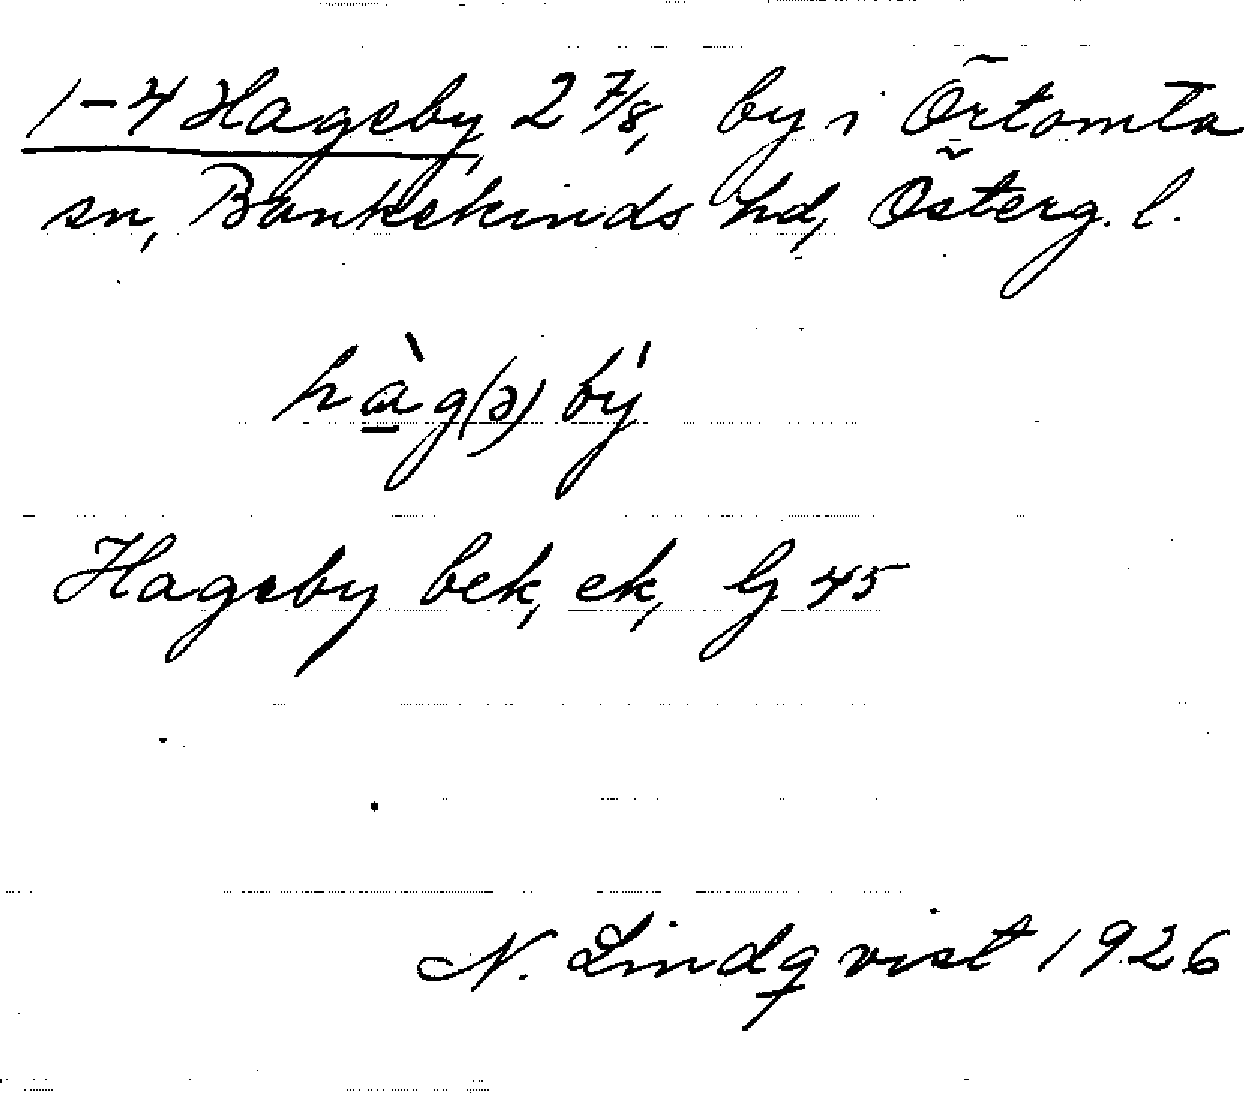 1-4 Hageby, 2 7/8, by i Örtomta
sn, Bankekinds hd, Österg. l.
hàg(ə) bý
Hageby bek, ek, Gj 45
N. Lindqvist 1926